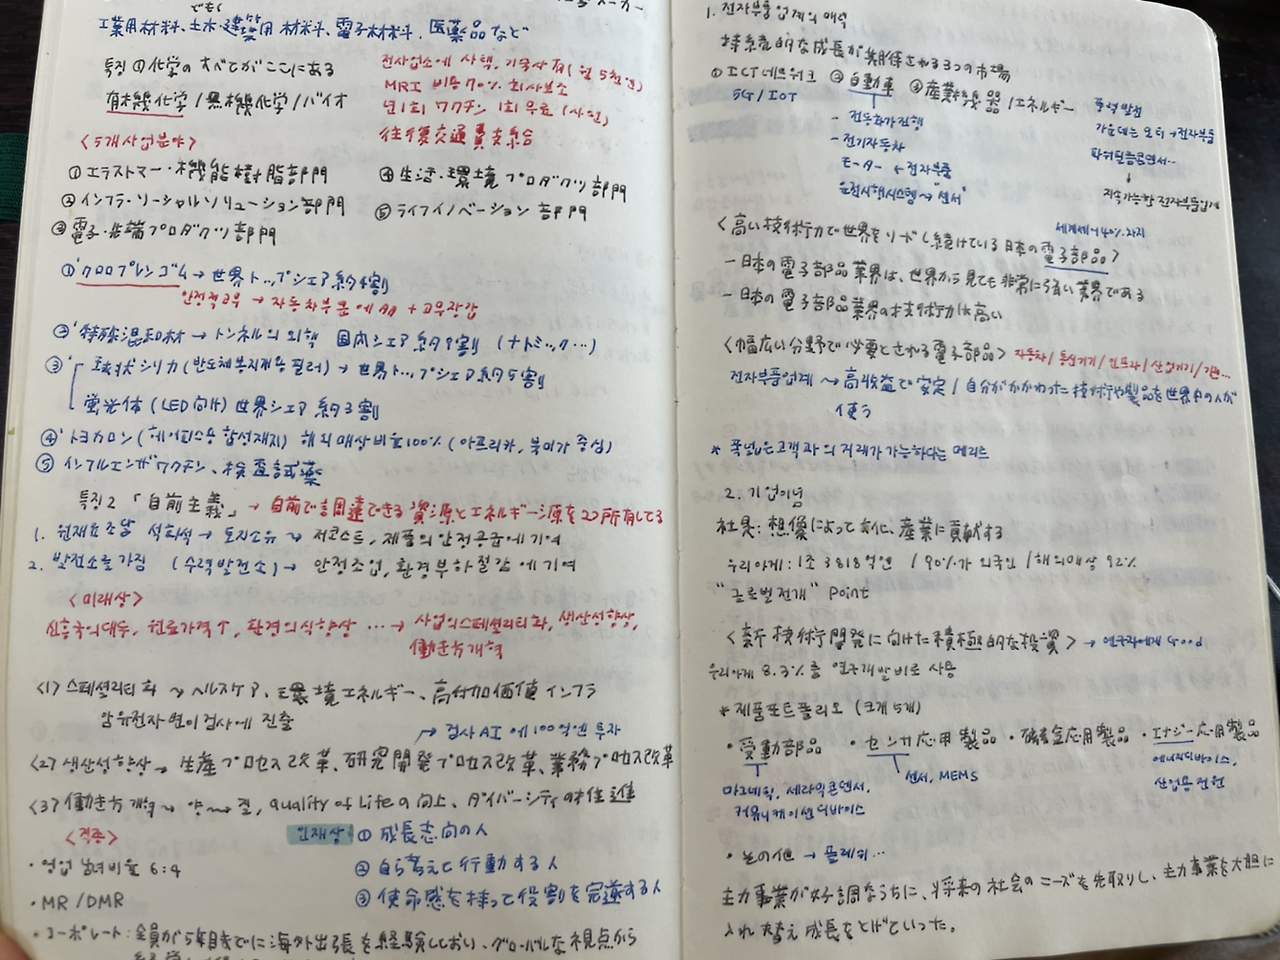 でもく
工業用材料、土木・建築用材料、電子材料、医薬品など
특징 ① 化学のすべてがここにある
有機化学 / 無機化学 / バイオ
전사업소에 사택, 기숙사 有 (월 5천엔)
MRI 비용 70% 회사보조
년1회 ワクチン 1회 무료 (사원)
往復交通費支給
<5개사업분야>
① エラストマー・機能樹脂部門
② インフラ・ソーシャルソリューション部門
③ 電子・先端プロダクツ部門
④ 生活・環境プロダクツ部門
⑤ ライフイノベーション部門
① 'クロロプレンゴム → 世界トップシェア 約4割
안전적고무 → 자동차부품에
② '特殊混和材 → トンネルの외벽 国内シェア約9割 (ナトミック…)
③ '球状シリカ (반도체봉지재용 필러) → 世界トップシェア約5割
蛍光体 (LED向け) 世界シェア 約3割
④ 'トヨカロン (헤어피스용 합성재지) 해외매상비율100% (아프리카, 북미가 중심)
⑤ インフルエンザワクチン、検査試薬
특징2 「自前主義」 → 自前で調達できる資源とエネルギー源を2つ所有してる
1. 원재료조달 석회석 → 토지소유 → 저코스트, 제품의 안정공급에 기여
2. 발전소를 가짐 (수력발전소) → 안정조업, 환경부하절감에 기여
<미래상>
신흥국의대두, 원료가격↑, 환경의식향상 … → 사업의스페셜리티화, 생산성향상,
働き方개혁
<1> 스페셜리티화 → ヘルスケア、環境エネルギー、高付加価値インフラ
암유전자변이검사에 진출
→ 검사AI에 100억엔 투자
<2> 생산성향상 → 生産プロセス改革、研究開発プロセス改革、業務プロセス改革
<3> 働き方개혁 → 양→질, quality of Lifeの向上、ダイバーシティの推進
<직종>
・영업 남녀비율 6:4
・MR / DMR
・コーポレート : 全員が5年目までに海外出張を経験しており、グローバルな視点から
인재상 ① 成長志向の人
② 自ら考えて行動する人
③ 使命感を持って役割を完遂する人
1. 전자부품업계의 매력
持続的な成長が期待される3つの市場
① ICT네트워크 ② 自動車 ③ 産業機器 / エネルギー
5G / IOT
- 전동화가진행
- 전기자동차
モーター ← 전자부품
운전시행시스템 → "센서"
풍력발전
가운데는 모터 → 전자부품
파워필름콘덴서…
↓
지속가능한 전자부품업계
세계셰어 40% 차지
<高い技術力で世界をリードし続けている日本の電子部品>
- 日本の電子部品業界は、世界から見ても非常に強い業界である
- 日本の電子部品業界の技術力は高い
<幅広い分野で必要とされる電子部品> 자동차/통신기기/인프라/산업기기/가전…
전자부품업계 → 高収益で安定 / 自分がかかわった技術や製品を世界中の人が
使う
* 폭넓은 고객과의 거래가 가능하다는 메리트
2. 기업이념
社是: 想像によって文化、産業に貢献する
우리에게: 1조 3818억엔 / 90%가 외국인 / 해외매상 92%
"글로벌전개" Point
<新技術開発に向けた積極的な投資> → 연구자에게 Good
우리에게 8.3%를 연구개발비로 사용
* 제품포트폴리오 (크게 5개)
・受動部品 ・センサ応用製品 ・磁気応用製品 ・エナジー応用製品
마그네틱, 세라믹콘덴서,
커뮤니케이션디바이스
센서, MEMS
에너지디바이스,
산업용전원
・その他 → 플래쉬…
主力事業が好調なうちに、将来の社会のニーズを先取りし、主力事業を大胆に
入れ替え成長をとげていった。